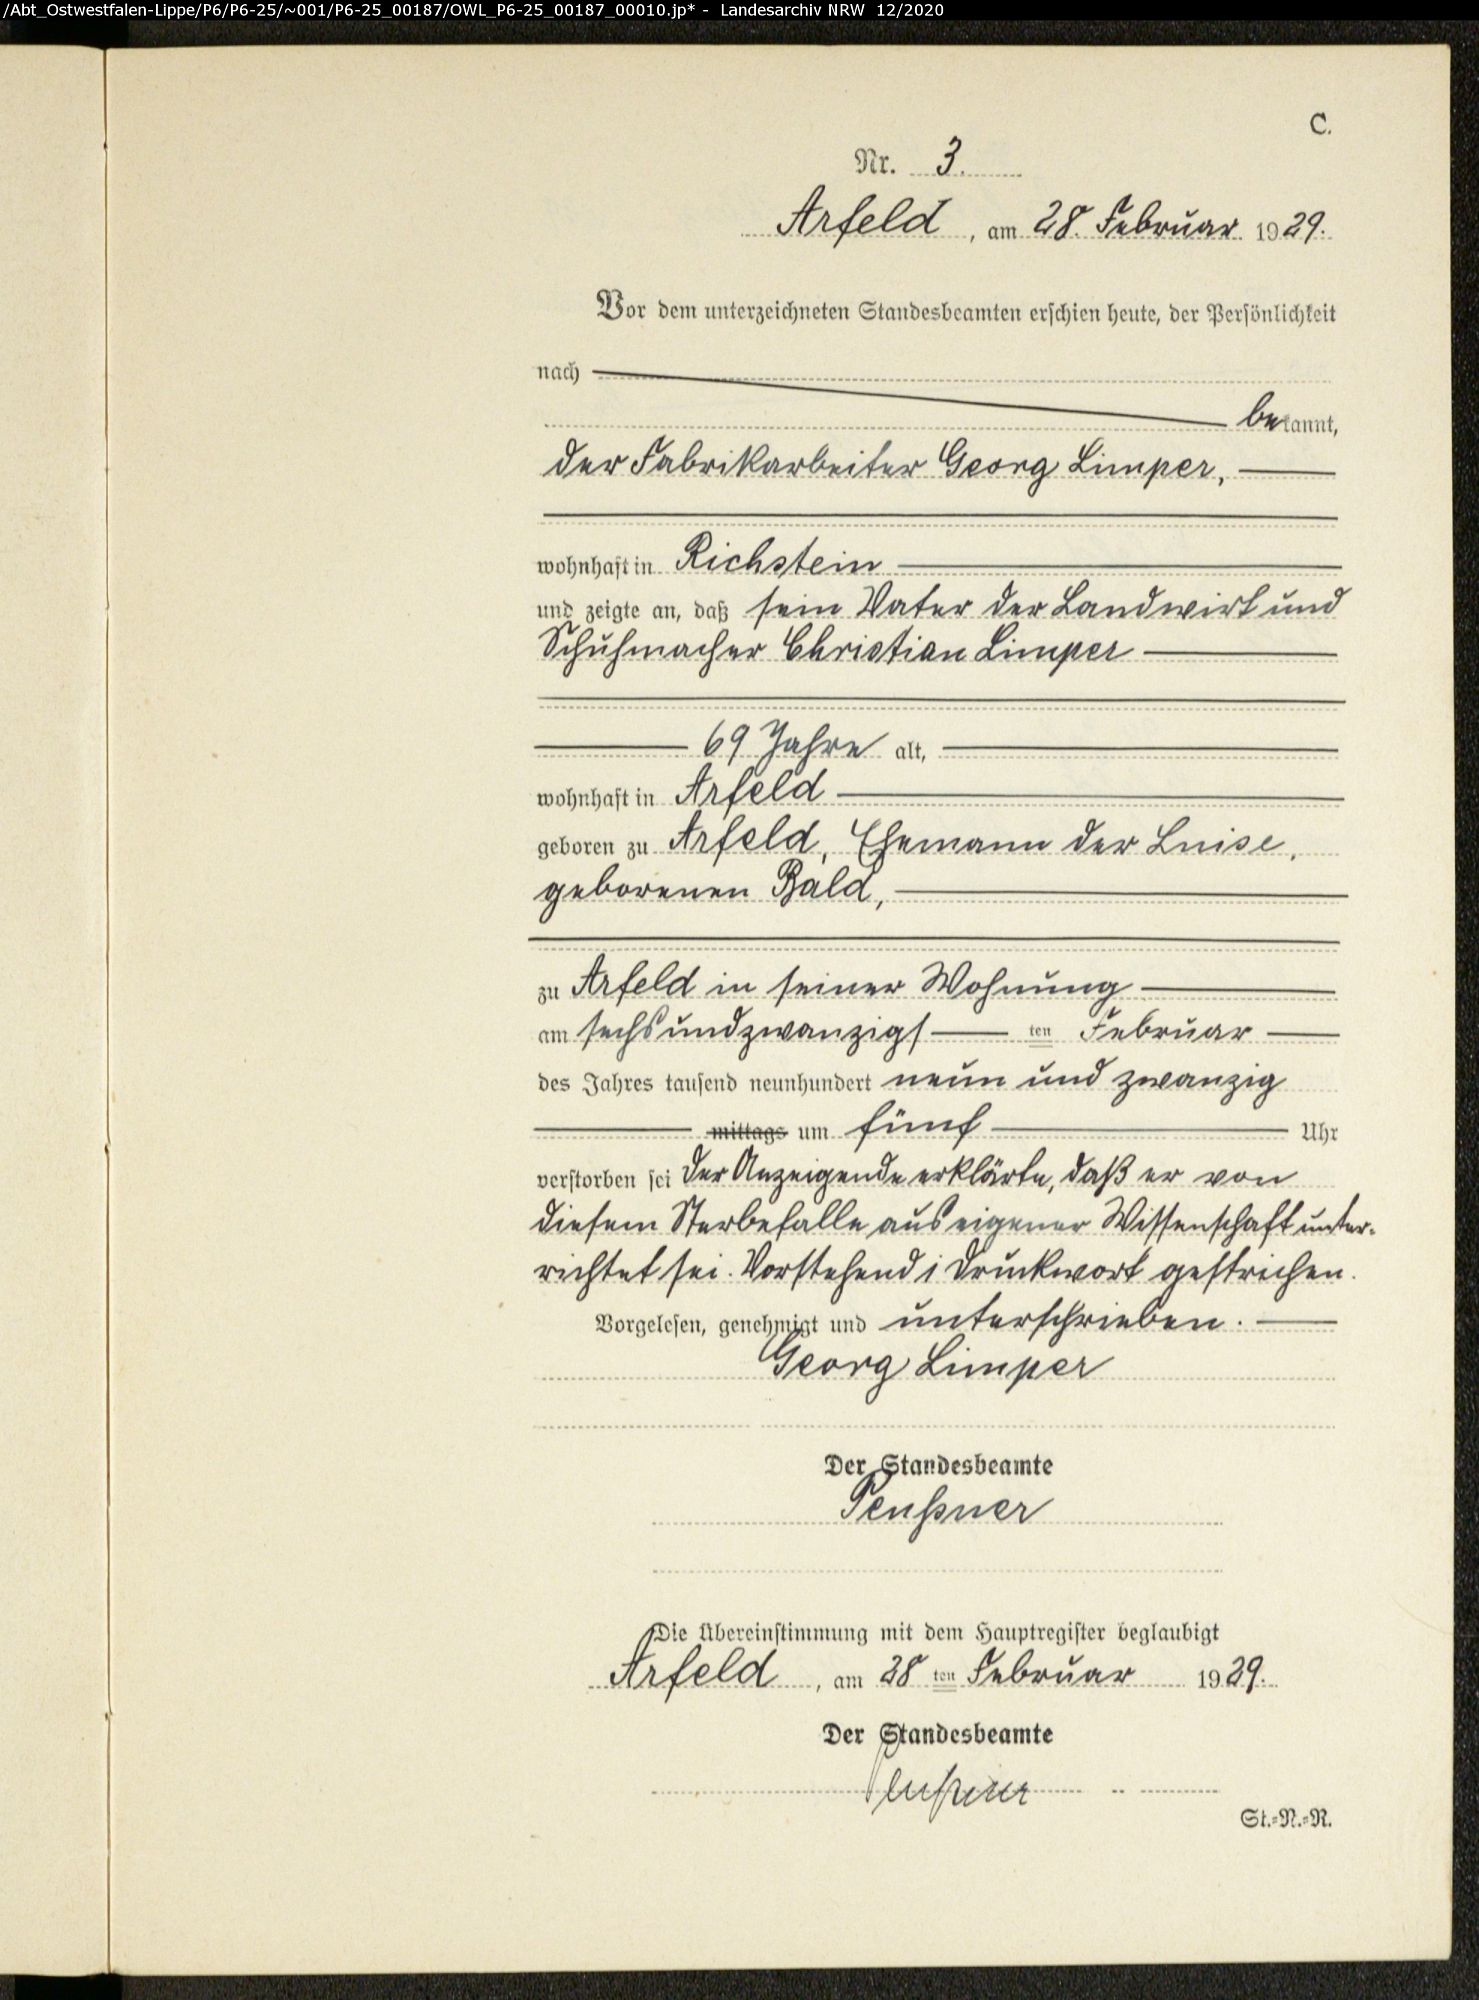 /Abt_Ostwestfalen-Lippe/P6/P6-25/~001/P6-25_00187/OWL_P6-25_00187_00010.jp* - Landesarchiv NRW 12/2020
C.
Nr. 3.
Arfeld, am 28. Februar 1929.
Vor dem unterzeichneten Standesbeamten erschien heute, der Persönlichkeit
nach
bekannt,
der Fabrikarbeiter Georg Limper,
wohnhaft in Richstein
und zeigte an, daß sein Vater der Landwirt und
Schuhmacher Christian Limper
69 Jahre alt,
wohnhaft in Arfeld
geboren zu Arfeld, Ehemann der Luise,
geborenen Bald,
zu Arfeld in seiner Wohnung
am sechsundzwanzigs ten Februar
des Jahres tausend neunhundert neun und zwanzig
mittags um fünf Uhr
verstorben sei Der Anzeigende erklärte, daß er von
diesem Sterbefalle aus eigener Wissenschaft unter-
richtet sei. Vorstehend 1 Druckwort gestrichen.
Vorgelesen, genehmigt und unterschrieben.
Georg Limper
Der Standesbeamte
Die Übereinstimmung mit dem Hauptregister beglaubigt
Arfeld, am 28 ten Februar 1929.
Der Standesbeamte
St.-N.-R.